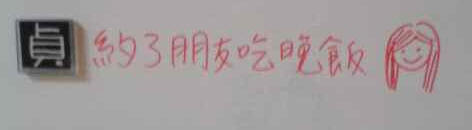 貞 約了朋友吃晚飯